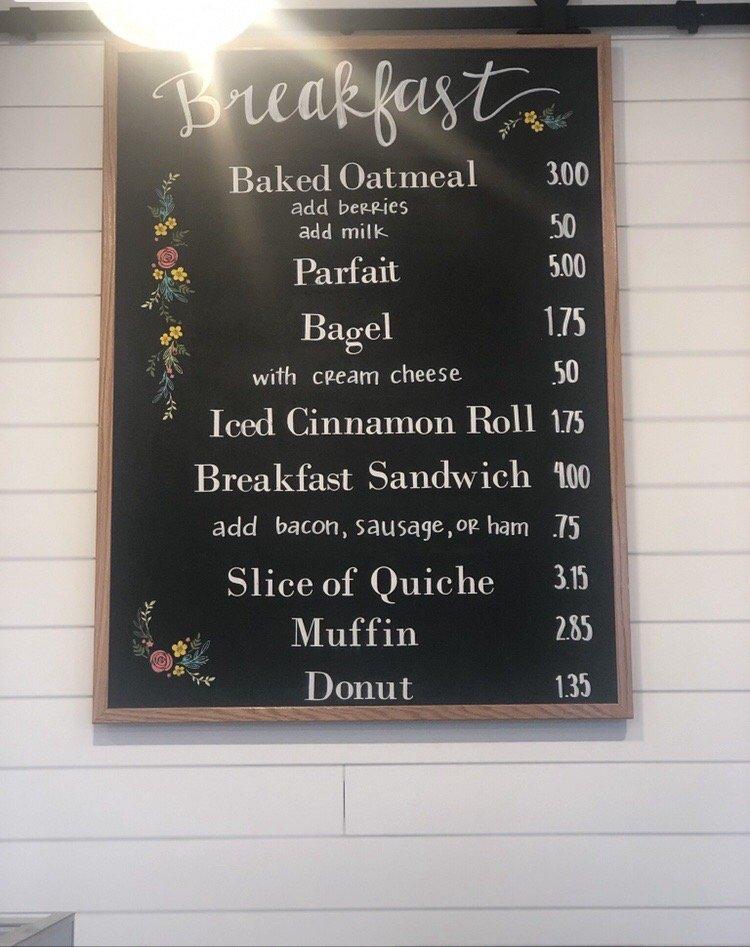 Breakfast
Baked Oatmeal 3.00
add berries
add milk .50
Parfait 5.00
Bagel 1.75
with cream cheese .50
Iced Cinnamon Roll 1.75
Breakfast Sandwich 4.00
add bacon, sausage, or ham .75
Slice of Quiche 3.15
Muffin 2.85
Donut 1.35